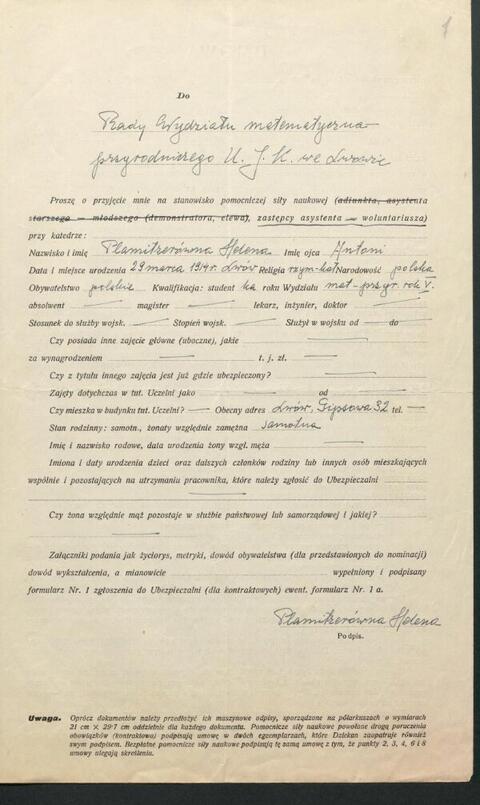 1
Do
Rady Wydziału matematyczno-
przyrodniczego U. J. K. we Lwowie
Proszę o przyjęcie mnie na stanowisko pomocniczej siły naukowej (adjunkta, asystenta
starszego — młodszego (demonstratora, elewa), zastępcy asystenta — woluntariusza)
przy katedrze:
Nazwisko i imię Plamitzerówna Helena Imię ojca Antoni
Data i miejsce urodzenia 29 marca 1914 r. Lwów Religia rzym-kat Narodowość polska
Obywatelstwo polskie Kwalifikacja: student ka roku Wydziału mat-przyr. rok V.
absolwent — magister — lekarz, inżynier, doktor —
Stosunek do służby wojsk. — Stopień wojsk. — Służył w wojsku od — do
Czy posiada inne zajęcie główne (uboczne), jakie —
za wynagrodzeniem — t. j. zł. —
Czy z tytułu innego zajęcia jest już gdzie ubezpieczony? —
Zajęty dotychczas w tut. Uczelni jako — od —
Czy mieszka w budynku tut. Uczelni? — Obecny adres Lwów, Gipsowa 32 tel. —
Stan rodzinny: samotn., żonaty względnie zamężna samotna
Imię i nazwisko rodowe, data urodzenia żony wzgl. męża —
Imiona i daty urodzenia dzieci oraz dalszych członków rodziny lub innych osób mieszkających
wspólnie i pozostających na utrzymaniu pracownika, które należy zgłosić do Ubezpieczalni
—
Czy żona względnie mąż pozostaje w służbie państwowej lub samorządowej i jakiej?
—
Załączniki podania jak życiorys, metryki, dowód obywatelstwa (dla przedstawionych do nominacji)
dowód wykształcenia, a mianowicie wypełniony i podpisany
formularz Nr. 1 zgłoszenia do Ubezpieczalni (dla kontraktowych) ewent. formularz Nr. 1 a.
Plamitzerówna Helena
Podpis.
Uwaga. Oprócz dokumentów należy przedłożyć ich maszynowe odpisy, sporządzone na półarkuszach o wymiarach
21 cm × 29·7 cm oddzielnie dla każdego dokumentu. Pomocnicze siły naukowe powołane drogą poruczenia
obowiązków (kontraktowa) podpisują umowę w dwóch egzemplarzach, które Dziekan zaopatruje również
swym podpisem. Bezpłatne pomocnicze siły naukowe podpisują tę samą umowę z tym, że punkty 2, 3, 4, 6 i 8
umowy ulegają skreśleniu.